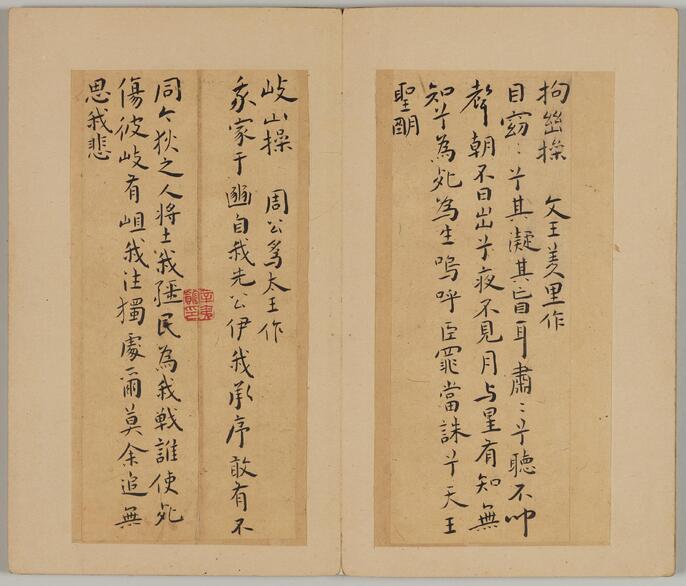 拘幽操 文王羑里作
目窈〻兮其凝其盲耳肅〻兮聽不聞
聲朝不日出兮夜不見月与星有知無
知兮為死為生嗚呼臣罪當誅兮天王
聖明
岐山操 周公為太王作
我家于豳自我先公伊我承序敢有不
同今狄之人將土我疆民為我戰誰使死
傷彼岐有岨我往獨處爾莫余追無
思我悲
辛夷館印